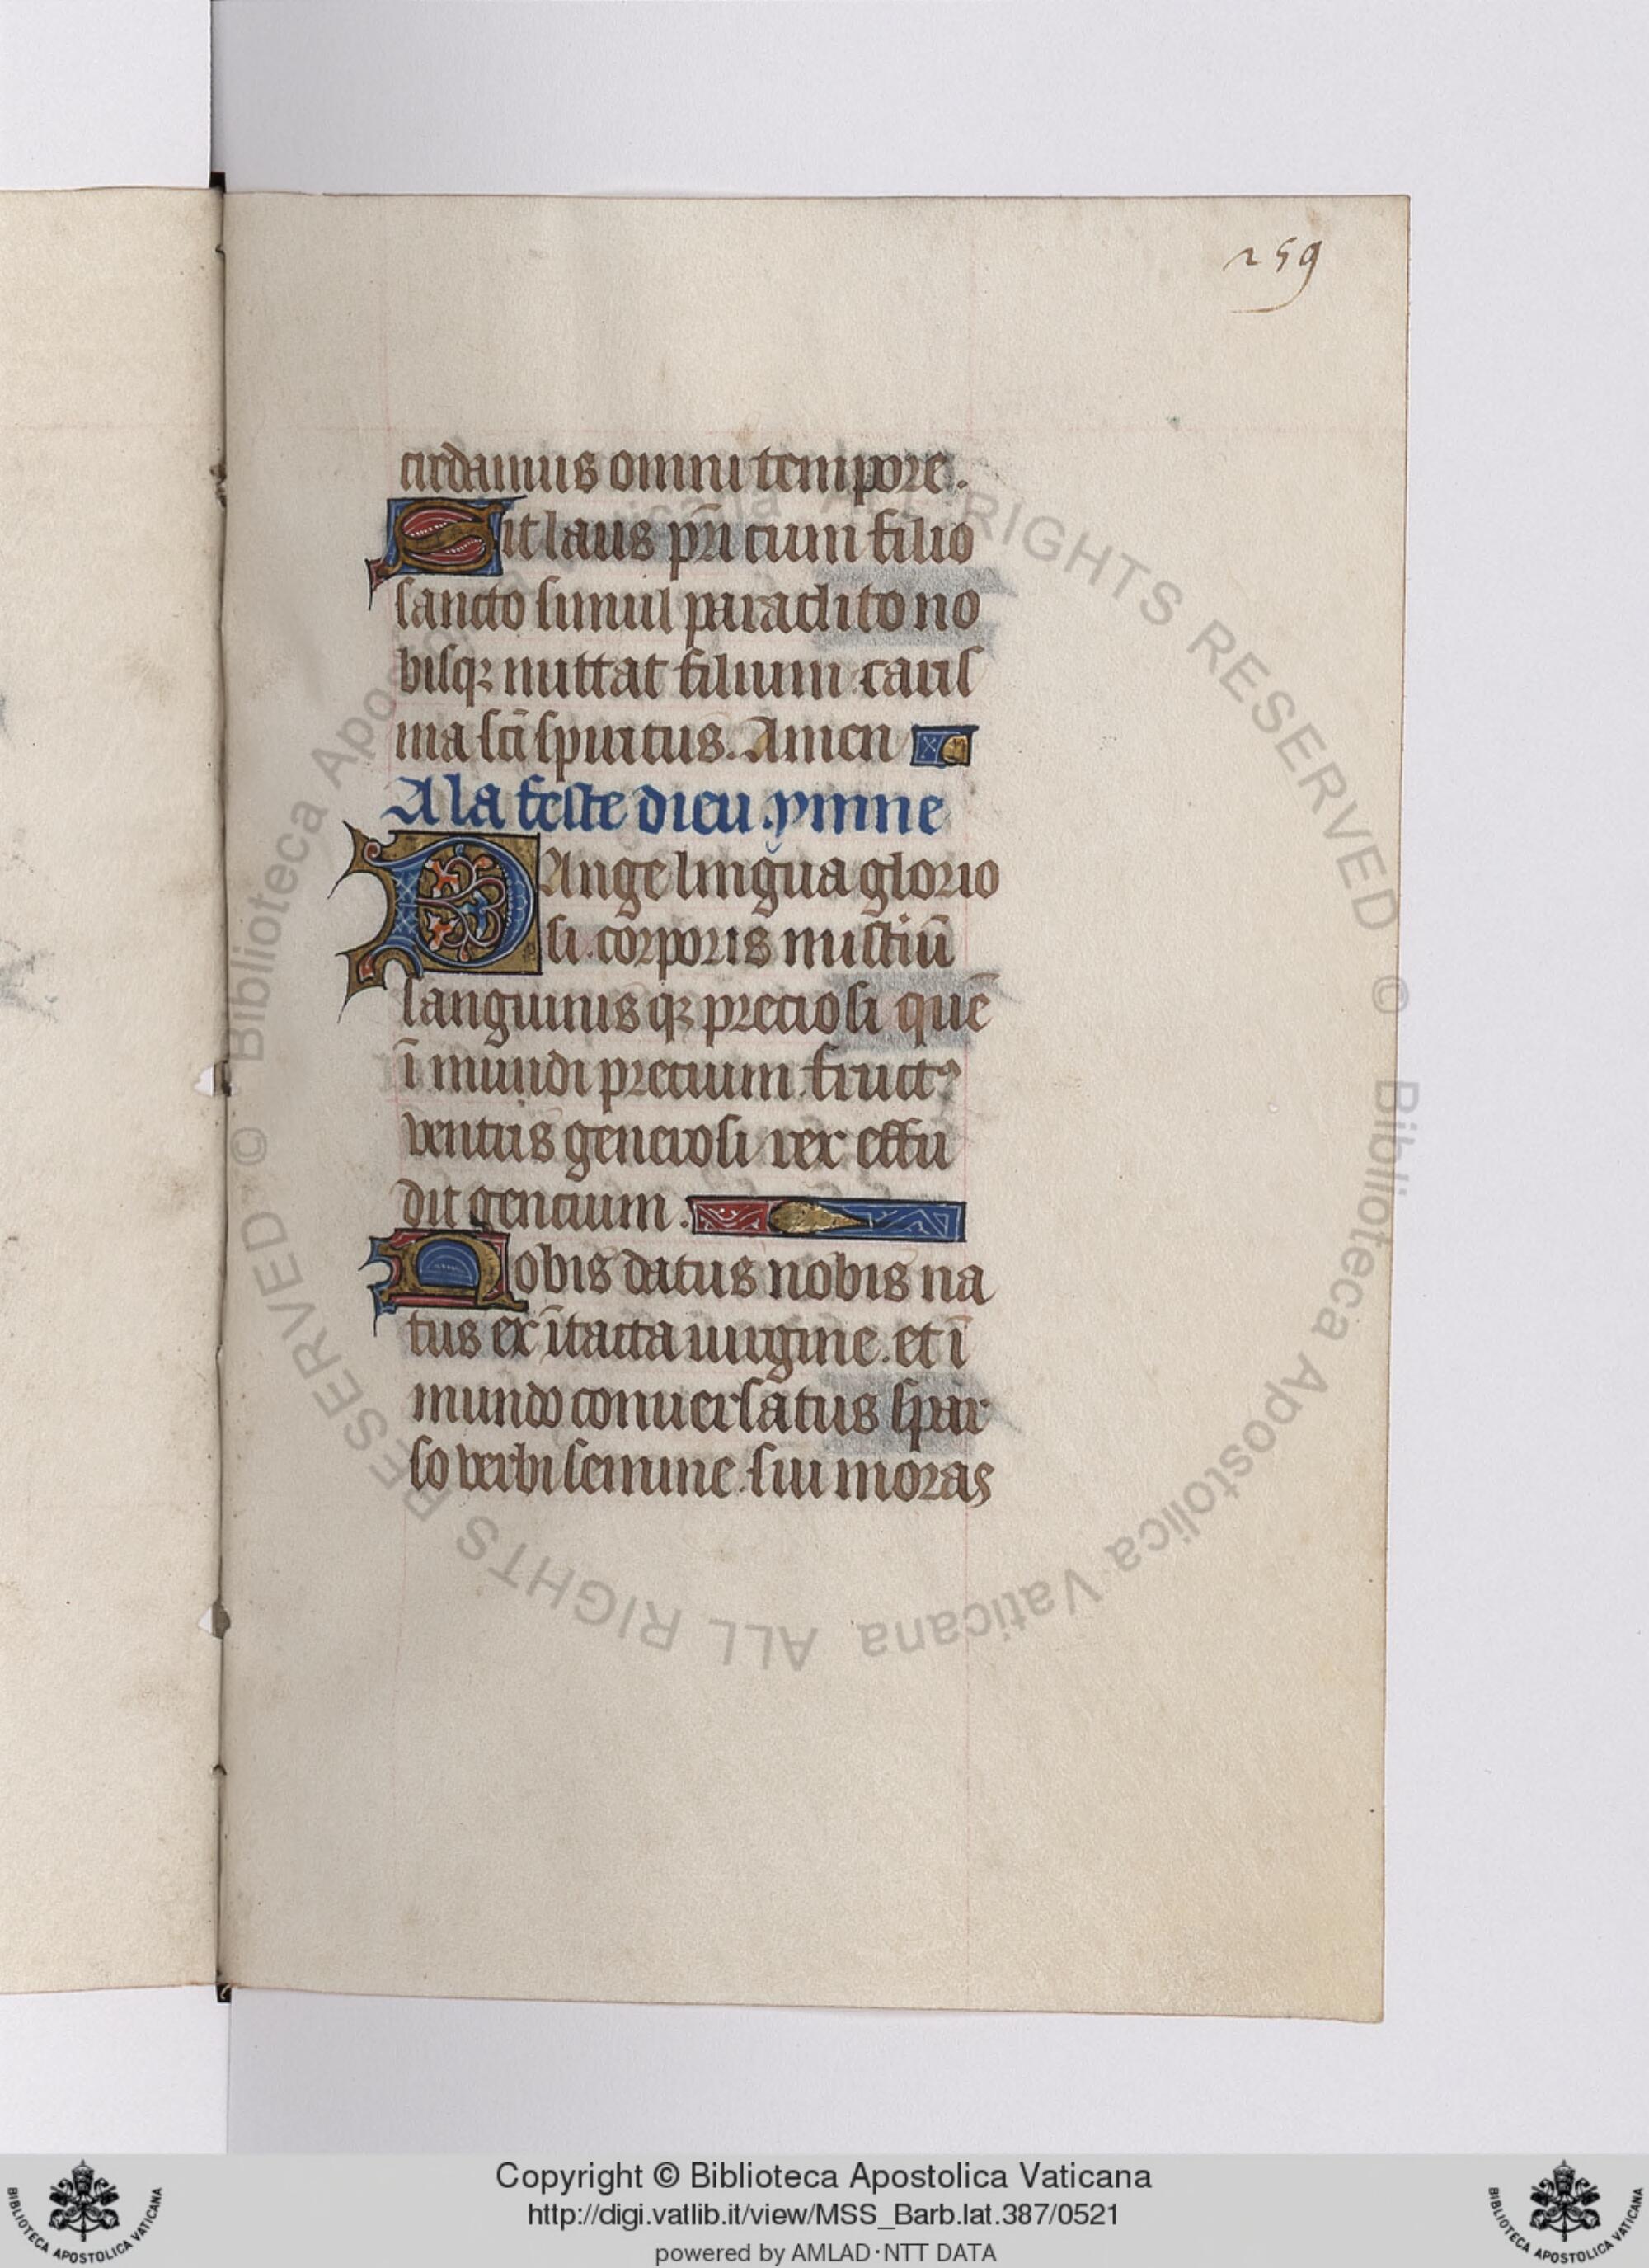 259
credamus omni tempore.
Sit laus pr̄i cum filio
sancto simul paraclito no
bisqꝫ mittat filium caris
ma sc̄i spiritus. Amen
A la feste dieu. ymne
PAnge lingua glorio
si. corporis mistiū
sanguinis qꝫ preciosi quē
ī mundi precium. fructꝰ
ventris generosi rex effu
dit gencium.
Nobis datus nobis na
tus ex ītacta uirgine. et ī
mundo conuersatus spar
so verbi semine. sui moras
© Biblioteca Apostolica Vaticana ALL RIGHTS RESERVED © Biblioteca Apostolica Vaticana ALL RIGHTS RESERVED
Copyright © Biblioteca Apostolica Vaticana
http://digi.vatlib.it/view/MSS_Barb.lat.387/0521
powered by AMLAD·NTT DATA
BIBLIOTECA APOSTOLICA VATICANA
BIBLIOTECA APOSTOLICA VATICANA